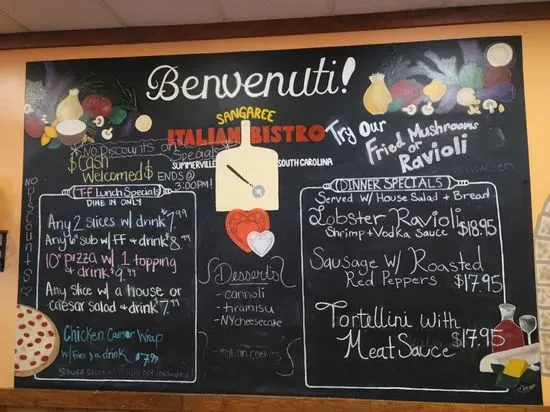 Benvenuti!
SANGAREE
ITALIAN BISTRO
SUMMERVILLE SOUTH CAROLINA
*No Discounts on Specials*
$Cash Welcomed$
ENDS @ 3:00PM!
Try Our
Fried Mushrooms
or
Ravioli
No Discounts
T-F Lunch Specials
DINE IN ONLY
Any 2 slices w/ drink $7.99
Any 6" sub w/ FF + drink $8.99
10" pizza w/ 1 topping
+ drink $9.99
Any slice w/ a house or
caesar salad + drink $7.99
Chicken Caesar Wrap
w/ Fries & a drink $7.99
not included!
Desserts
- cannoli
- tiramisu
- NY cheesecake
DINNER SPECIALS
Served w/ House Salad + Bread
Lobster Ravioli
Shrimp + Vodka Sauce $18.95
Sausage w/ Roasted
Red Peppers $17.95
Tortellini with
Meat Sauce $17.95